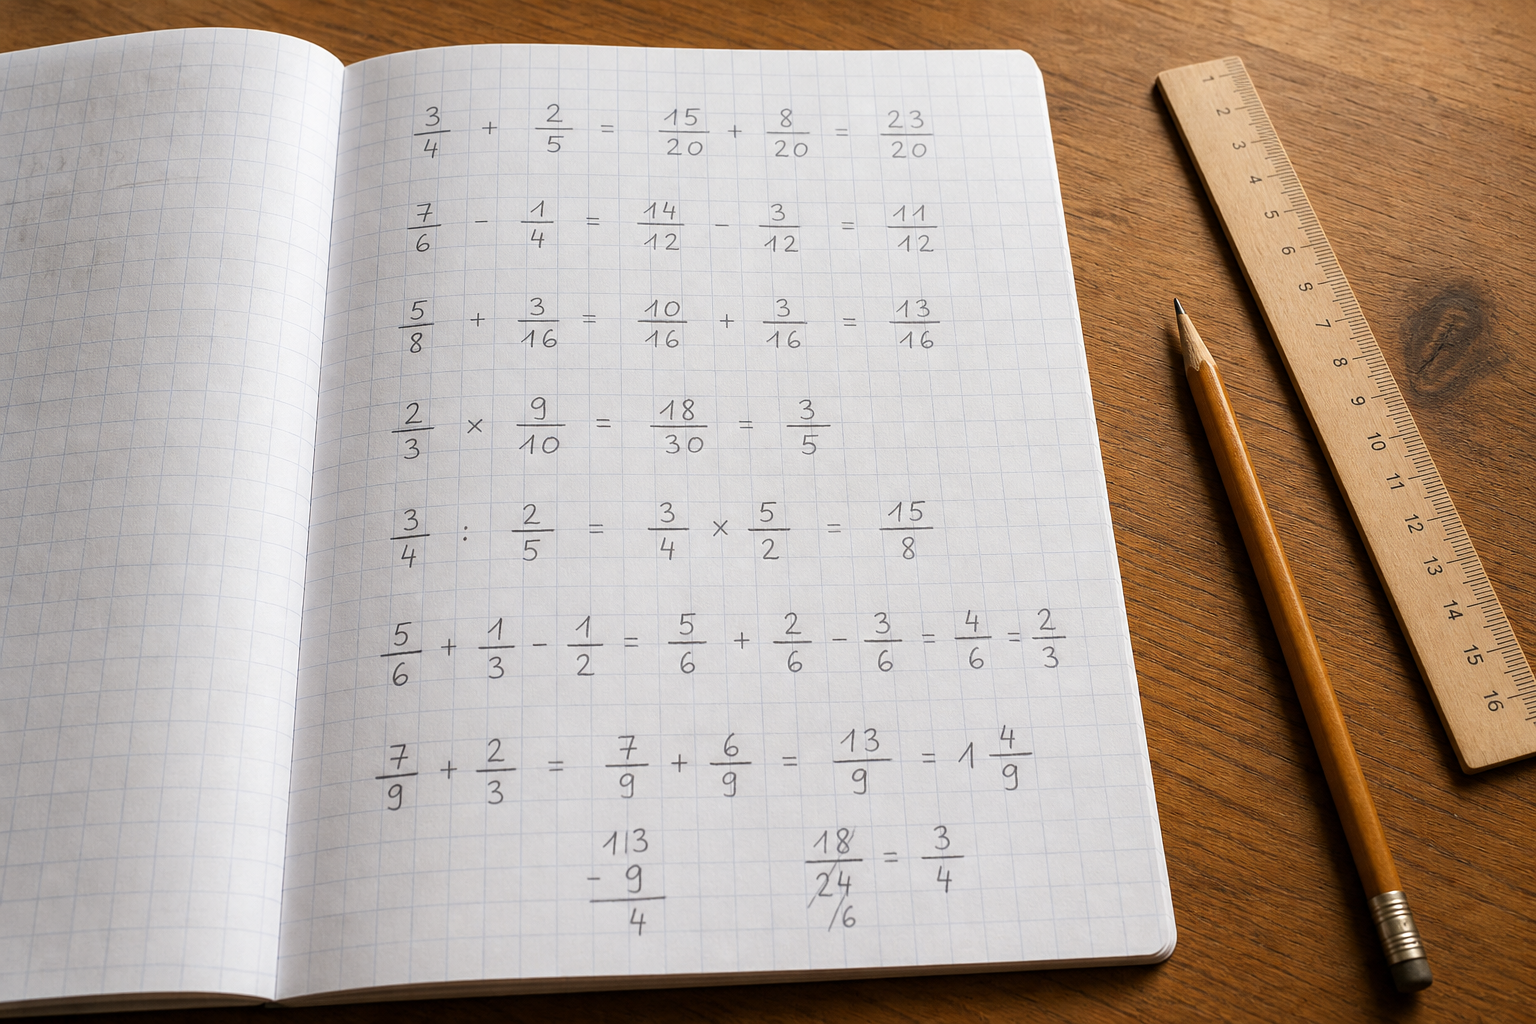 3/4 + 2/5 = 15/20 + 8/20 = 23/20
7/6 - 1/4 = 14/12 - 3/12 = 11/12
5/8 + 3/16 = 10/16 + 3/16 = 13/16
2/3 × 9/10 = 18/30 = 3/5
3/4 : 2/5 = 3/4 × 5/2 = 15/8
5/6 + 1/3 - 1/2 = 5/6 + 2/6 - 3/6 = 4/6 = 2/3
7/9 + 2/3 = 7/9 + 6/9 = 13/9 = 1 4/9
1|3
- 9
4
18/24 = 3/4
/6
1 2 3 4 5 6 S 7 8 9 10 11 12 13 14 15 16